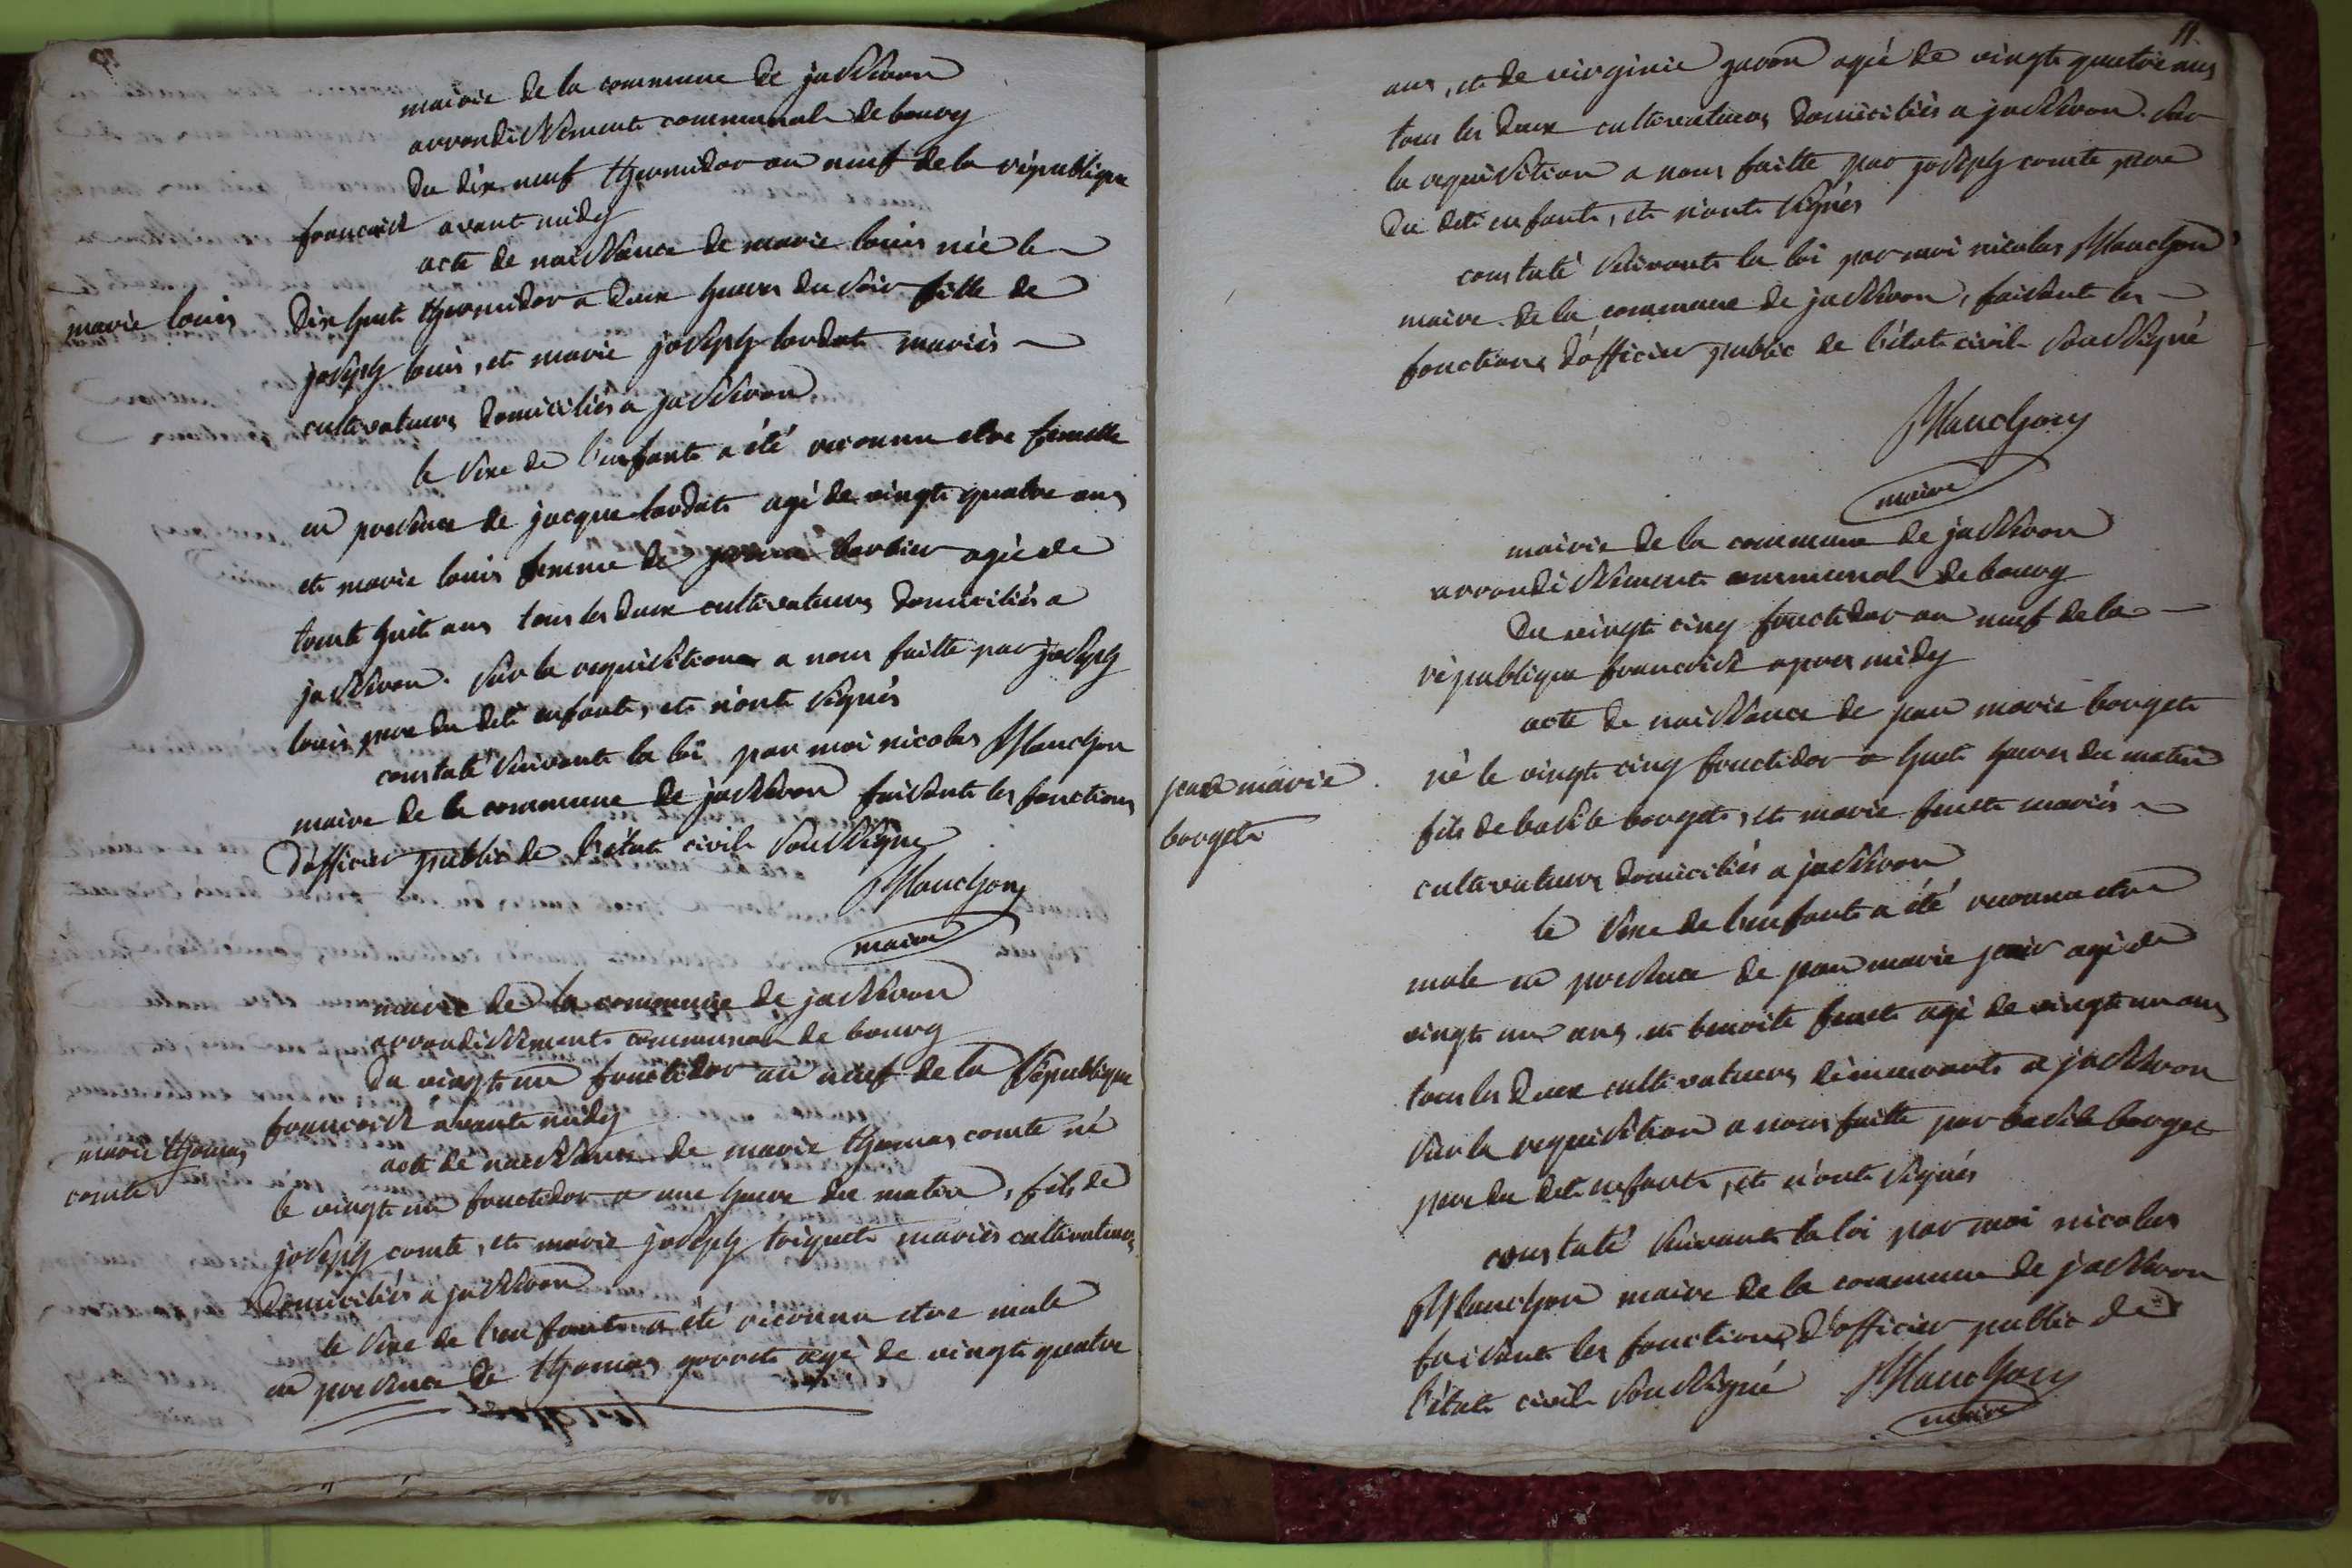 mairie de la commune de jasseron
arrondissement communal de bourg
du dix neuf thermidor an neuf de la république
francaise avant midy
acte de naissance de marie louis née le
marie louis
dix huit thermidor a deux heures du soir fille de
joseph louis, et marie joseph tardet mariés
cultivateurs domiciliés a jasseron
le sexe de l'enfant a été reconnu etre femelle
en presence de jacque tardet agé de vingt quatre ans
et marie louis femme de barbier agée de
trente huit ans tous les deux cultivateurs domiciliés a
jasseron. sur la requisition a nous faitte par joseph
louis pere du dit enfant, et n'ont signés
constaté suivant la loi par moi nicolas Manchon
maire de la commune de jasseron faisant les fonctions
d'officier public de l'état civil soussigné
Manchon
maire
mairie de la commune de jasseron
arrondissement communal de bourg
du vingt un fructidor an neuf de la république
francaise avant midy
acte de naissance de marie thomas comte né
marie thomas
comte
le vingt un fructidor a une heure du matin, fils de
joseph comte, et marie joseph toiquet mariés cultivateurs
domiciliés a jasseron
le sexe de l'enfant a été reconnu etre male
en presence de thomas agé de vingt quatre
11.
ans, et de virginie agée de vingt quatre ans
tous les deux cultivateurs domiciliés a jasseron. sur
la requisition a nous faitte par joseph comte pere
du dit enfant, et n'ont signés
constaté suivant la loi par moi nicolas Manchon
maire de la commune de jasseron, faisant les
fonctions d'officier public de l'état civil soussigné
Manchon
maire
mairie de la commune de jasseron
arrondissement communal de bourg
du vingt cinq fructidor an neuf de la
république francaise apres midy
acte de naissance de jean marie borget
jean marie
borget
né le vingt cinq fructidor a huit heures du matin
fils de basile borget, et marie mariés
cultivateurs domiciliés a jasseron
le sexe de l'enfant a été reconnu etre
male en presence de jean marie agé de
vingt un ans et benoite agé de vingt un ans
tous les deux cultivateurs demeurant a jasseron
sur la requisition a nous faitte par basile borget
pere du dit enfant, et n'ont signés
constaté suivant la loi par moi nicolas
Manchon maire de la commune de jasseron
faisant les fonctions d'officier public de
l'état civil soussigné Manchon
maire